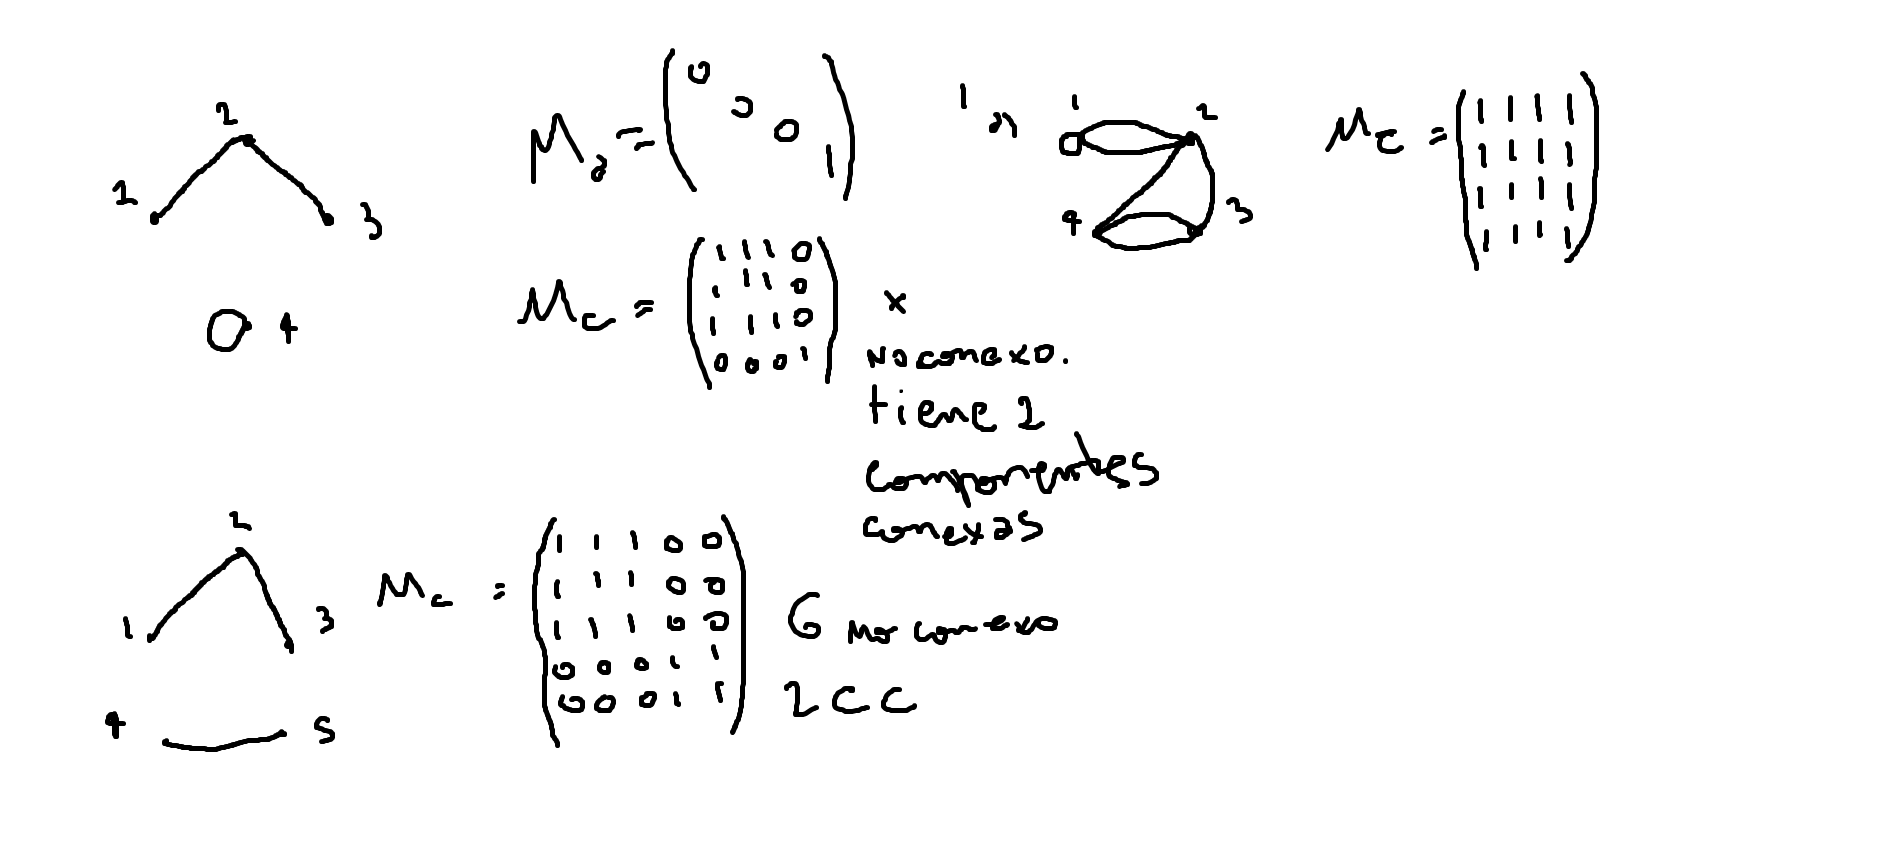 2
1
3
4
Ma = ( 0
0
0
1 )
Mc = ( 1 1 1 0
1 1 1 0
1 1 1 0
0 0 0 1 ) x
no conexo.
tiene 2
componentes
conexas
1 a)
1 2
4 3
Mc = ( 1 1 1 1
1 1 1 1
1 1 1 1
1 1 1 1 )
2
1 3
4 5
Mc = ( 1 1 1 0 0
1 1 1 0 0
1 1 1 0 0
0 0 0 1 1
0 0 0 1 1 )
G no conexo
2 CC